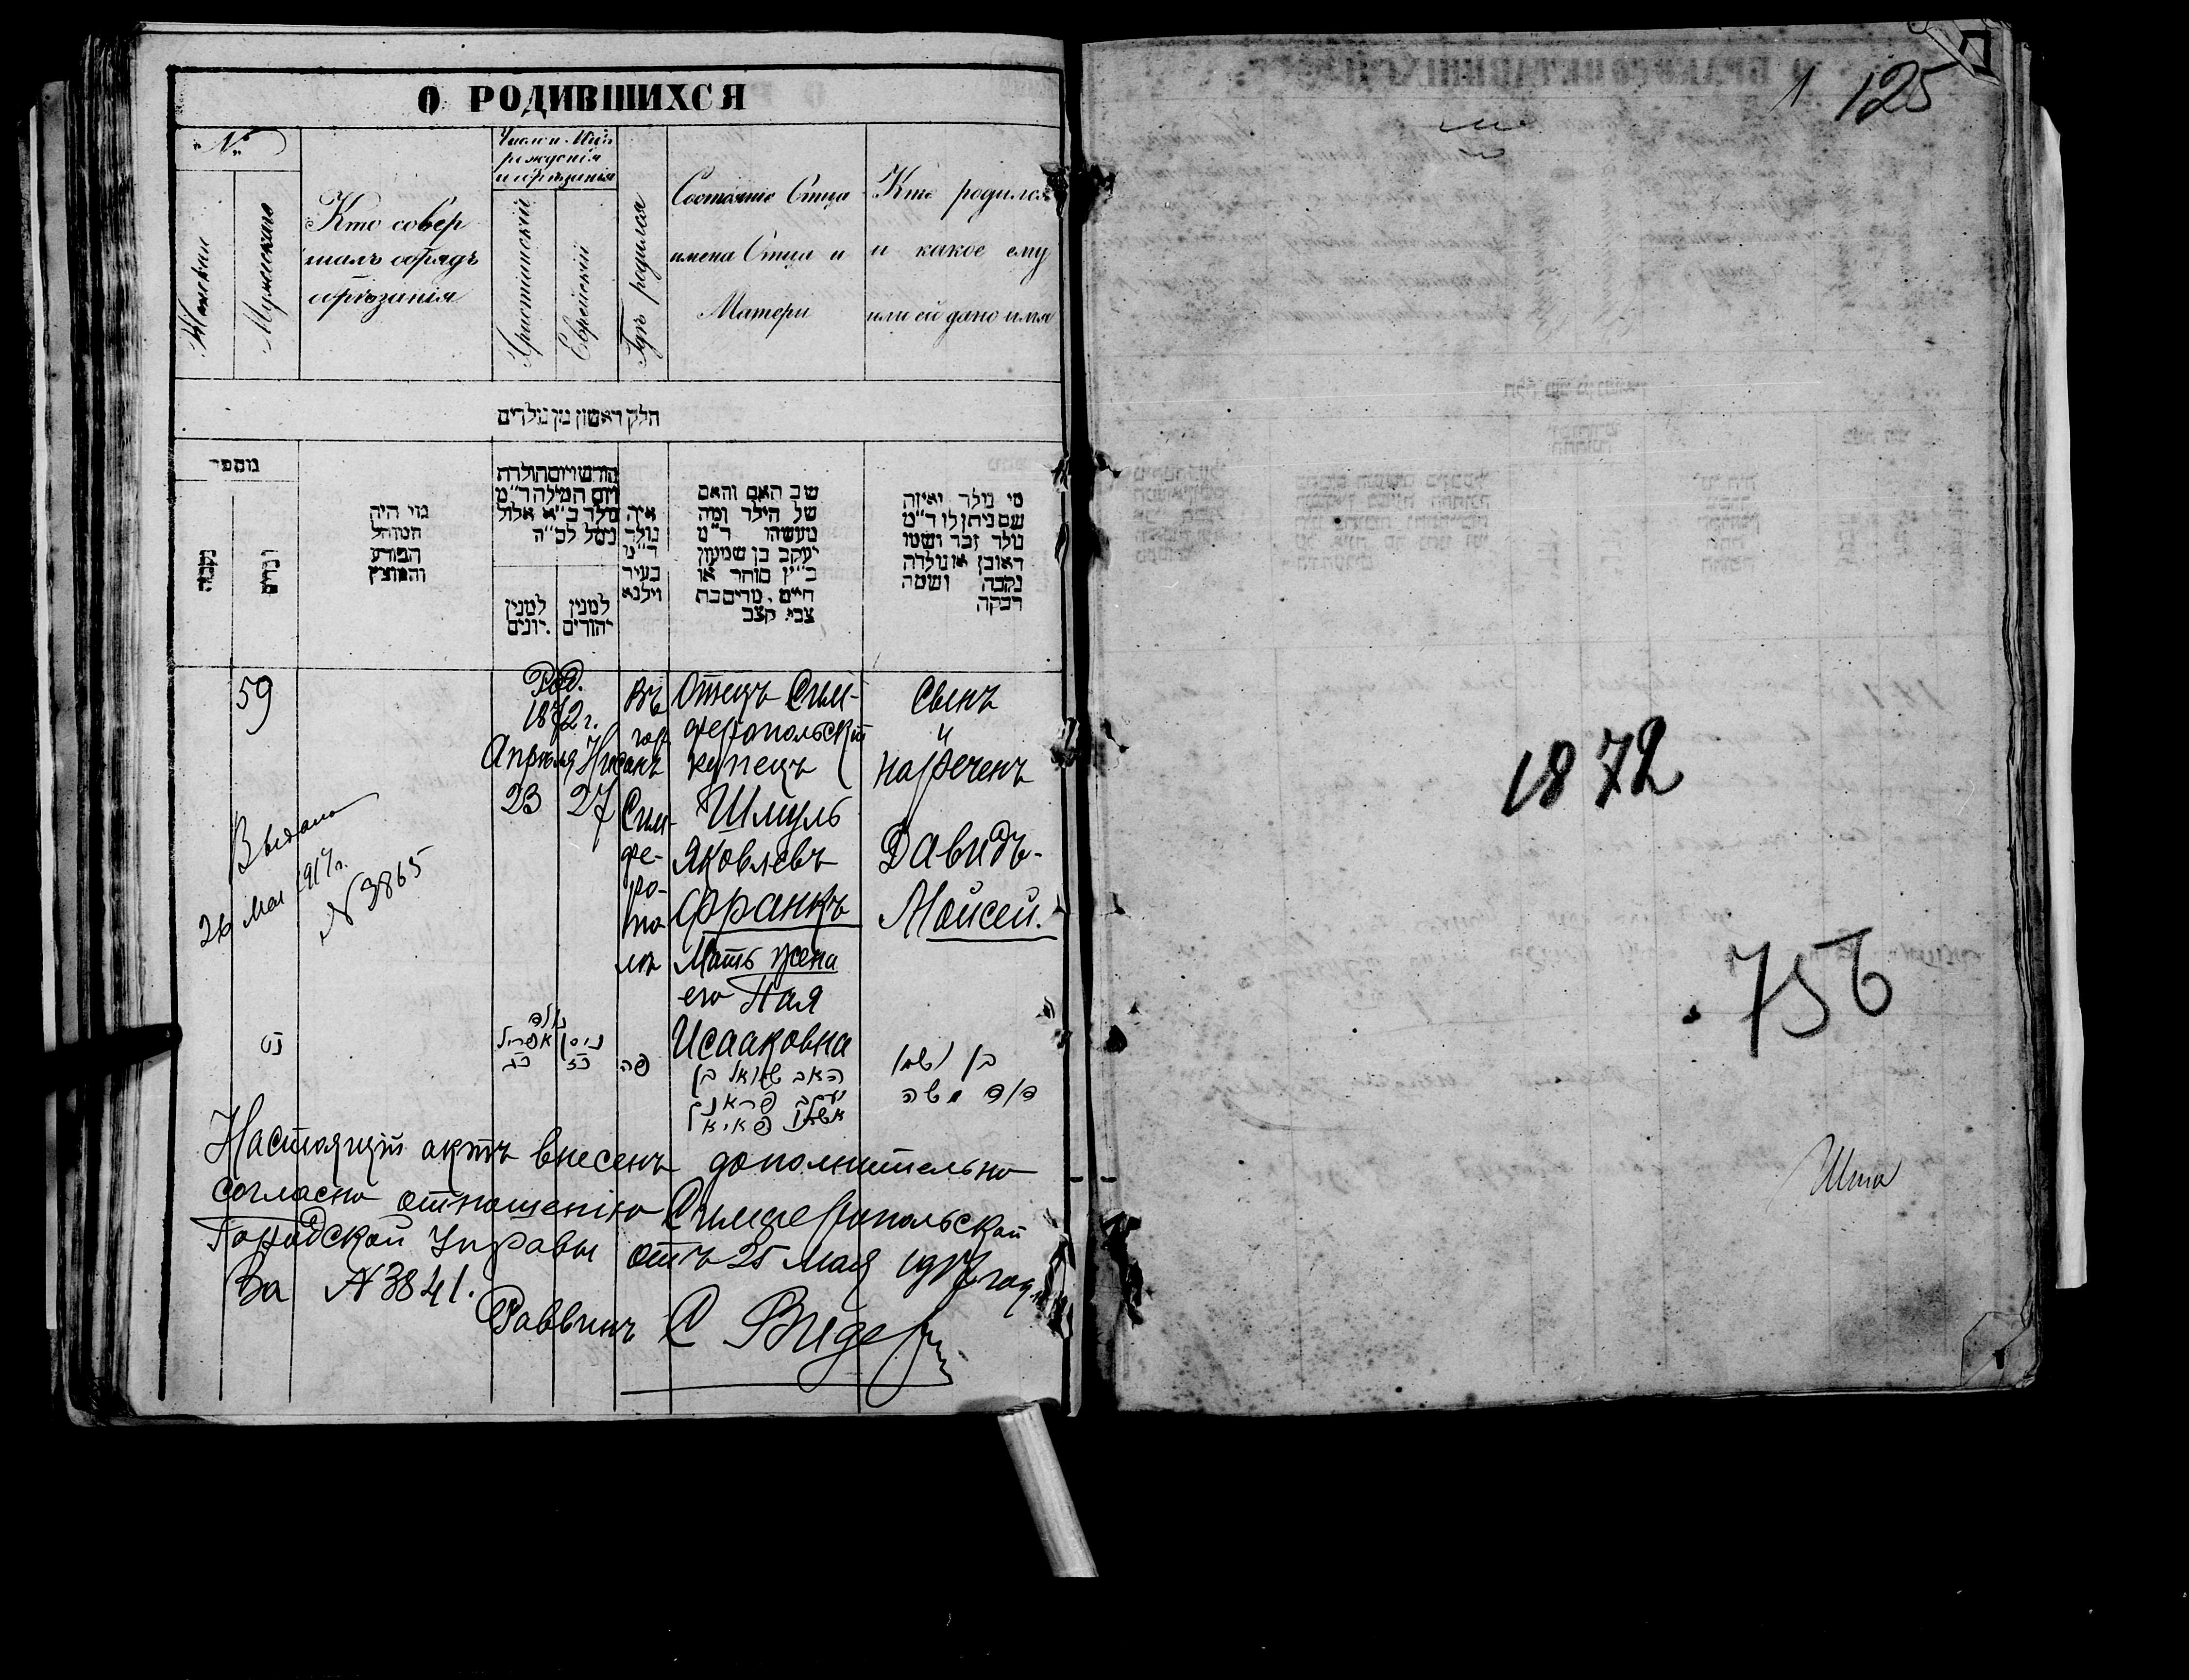 О РОДИВШИХСЯ
№
Женскій
Мужескаго
Кто совер
шалъ обрядъ
обрѣзанія
Число и Мѣс
рожденія
и обрѣзанія
Христіанскій
Еврейскій
Гдѣ родился
Состояніе Отца
имена Отца и
Матери
Кто родился
и какое ему
или ей дано имя
חלק ראשון מן נולדים
מספר
נקבות
זכרים
מי היה
המוהל
הפורע
והמוצץ
חודש ויום הולדת
ויום המילה ד״מ
נולד כ״א אלול
נימל לכ״ה
למנין
יונים.
למנין
יהודים
איה
נולד
ד״מ
בעיר
ווילנא
שב האם והאם
של הילד ומה
מעשהו ד״מ
יעקב בן שמעון
כ״ץ סוחר או
חייט, מרים בת
צבי קצב
מי נולד ואיזה
שם ניתן לו ד״מ
נולד זכר ושמו
ראובן או נולדה
נקבה ושמה
רבקה
59
Род.
1872 г.
Апрѣля Нисанъ
23 27
Въ
гор.
Сим-
фе-
ро-
по-
лѣ
Отецъ Сим-
феропольскій
купецъ
Шмуль
Яковлевъ
Франкъ
Мать жена
его Пая
Исааковна
Сынъ
и
нареченъ
Давидъ-
Моисей.
Выдано
26 Мая 1917 г.
№ 3865
נט
נולד
ניסן אפריל
כז כג
פה
האב שמואל בן
יעקב פראנק
אשתו פאיא
בן ושמו
דוד משה
Настоящій актъ внесенъ дополнительно
согласно отношенію Симферопольской
Городской Управы отъ 25 мая 1917 года
За № 3841.
Раввинъ
1 125
1872
756